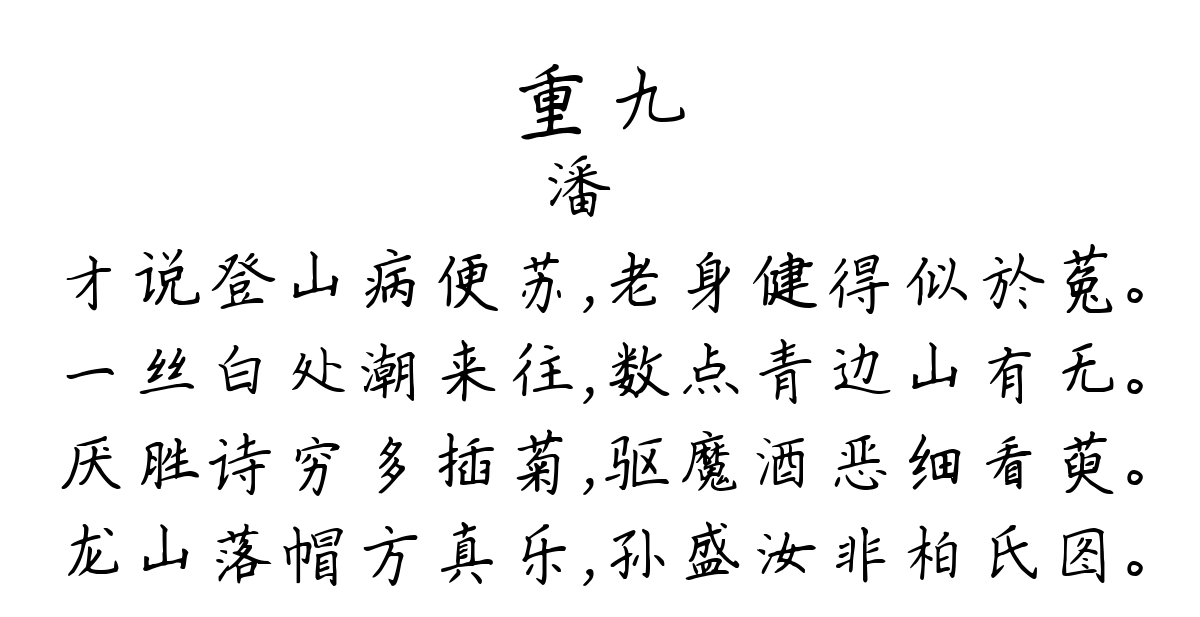 重九
潘
才说登山病便苏,老身健得似於菟。
一丝白处潮来往,数点青边山有无。
厌胜诗穷多插菊,驱魔酒恶细看萸。
龙山落帽方真乐,孙盛汝非柏氏图。